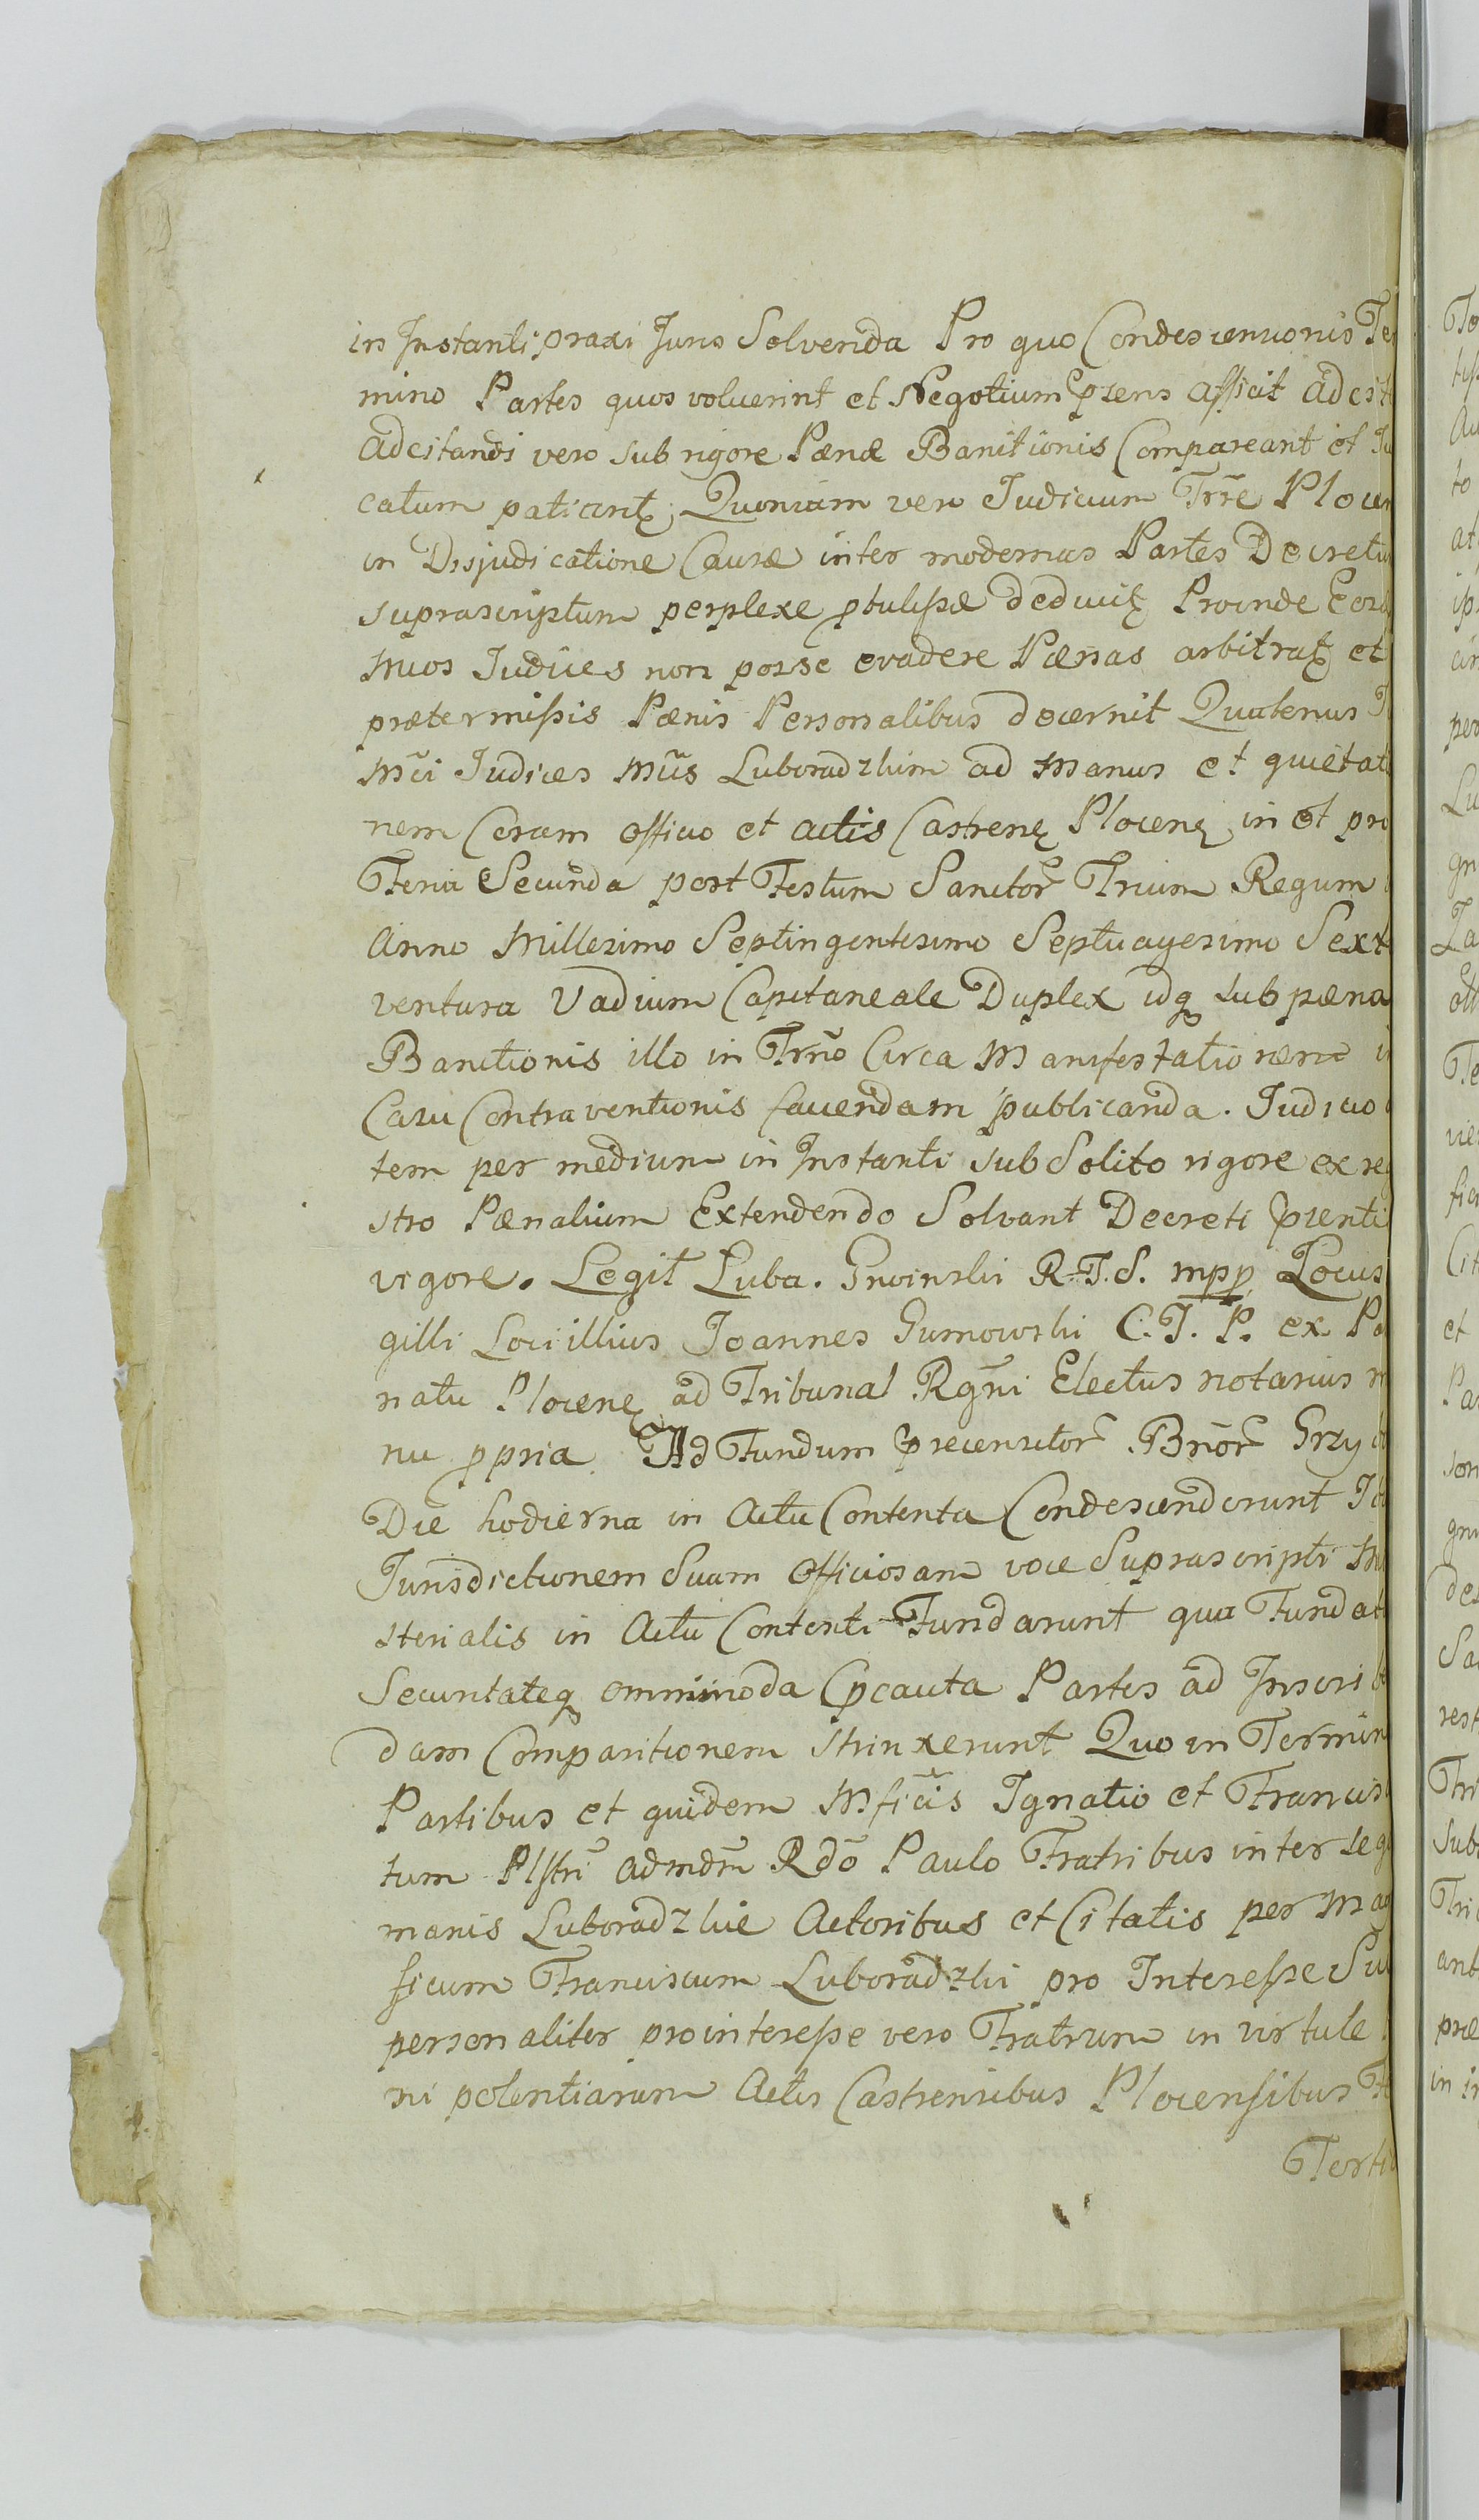 in Instanti praxi Juris Solvenda Pro quo Condescensionis Te
mino Partes quos voluerint et Negotium prens afficit adcit
adcitandi vero sub rigore Pænæ Banitionis Compareant et Ju
catum patiant; Quoniam vero Judicium Trre Plocen
in Disjudicatione Causæ inter modernas Partes Decretu
supra scriptum perplexe ptulisse deducit Proinde Eosd
Mcos Judices non posse evadere Pænas arbitrat et
prætermissis Pænis Personalibus decernit Quatenus I
Mci Judices Mcis Luboradzkim ad Manus et quietat
nem Coram Officio et actis Castren Plocen in et pro
Feria Secunda post Festum Sanctor Trium Regum
Anno Millesimo Septingentesimo Septuagesimo Sext
ventura Vadium Capitaneale Duplex idq sub pæna
Banitionis illo in Trno Circa Manifestationem i
Casu Contraventionis favendam publicanda. Judicio
tem per medium in Instanti sub Solito rigore ex re
stro Pænalium Extendendo Solvant Decreti pnti
vigore. Legit Luba. Gwinski R. T. S. mpp Locus
gilli Loci illius Joannes Gumowski C. T. P. ex Pa
natu Plocen ad Tribunal Rgni Electus notarius m
nu ppria Ad Fundum precensitor Bnor Grzy
Die hodierna in Actu Contenta Condescenderunt I
Jurisdictionem Suam Officiosam voce Suprascripti M
sterialis in Actu Contenti Fundarunt qua Fundat
Securitateq omnimoda pcauta Partes ad Inscrib
dam Comparitionem strinxerunt Quo in Termin
Partibus et quidem Mficis Ignatio et Francis
tum Plstri admdm Rdo Paulo Fratribus inter se g
manis Luboradzkie Actoribus et Citatis per Mag
ficum Franciscum Luboradzki pro Interesse Su
personaliter pro interesse vero Fratrum in virtute
ni potentiarum Actis Castrensibus Plocensibus F
Terti